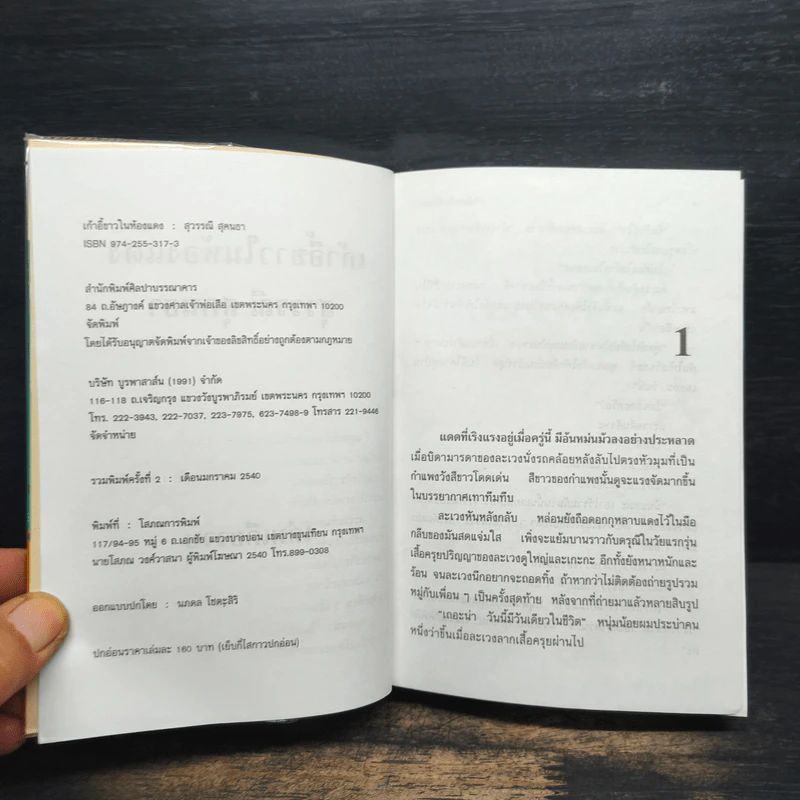 เก้าอี้ขาวในห้องแดง : สุวรรณี สุคนธา
ISBN 974-255-317-3
สำนักพิมพ์ศิลปาบรรณาคาร
84 ถ.อัษฎางค์ แขวงศาลเจ้าพ่อเสือ เขตพระนคร กรุงเทพา 10200
จัดพิมพ์
โดยได้รับอนุญาตจัดพิมพ์จากเจ้าของลิขสิทธิ์อย่างถูกต้องตามกฎหมาย
บริษัท บูรพาสาส์น (1991) จำกัด
116-118 ถ.เจริญกรุง แขวงวังบูรพาภิรมย์ เขตพระนคร กรุงเทพา 10200
โทร. 222-3943, 222-7037, 223-7975, 623-7498-9 โทรสาร 221-9446
จัดจำหน่าย
รวมพิมพ์ครั้งที่ 2 : เดือนมกราคม 2540
พิมพ์ที่ : โสภณการพิมพ์
117/94-95 หมู่ 6 ถ.เอกชัย แขวงบางบอน เขตบางขุนเทียน กรุงเทพา
นายโสภณ วงศ์วาสนา ผู้พิมพ์โฆษณา 2540 โทร.899-0308
ออกแบบปกโดย : นภดล โชตะสิริ
ปกอ่อนราคาเล่มละ 160 บาท (เย็บกี่ไสกาวปกอ่อน)
1
แดดที่เริงแรงอยู่เมื่อครู่นี้ มีอันหม่นมัวลงอย่างประหลาด
เมื่อบิดามารดาของละเวงนั่งรถคล้อยหลังลับไปตรงหัวมุมที่เป็น
กำแพงวังสีขาวโดดเด่น สีขาวของกำแพงนั้นดูจะแรงจัดมากขึ้น
ในบรรยากาศเทาทึมทึบ
ละเวงหันหลังกลับ หล่อนยังถือดอกกุหลาบแดงไว้ในมือ
กลีบของมันสดแจ่มใส เพิ่งจะแย้มบานราวกับดรุณีในวัยแรกรุ่น
เสื้อครุยปริญญาของละเวงดูใหญ่และเกะกะ อีกทั้งยังหนาหนักและ
ร้อน จนละเวงนึกอยากจะถอดทิ้ง ถ้าหากว่าไม่ติดต้องถ่ายรูปรวม
หมู่กับเพื่อน ๆ เป็นครั้งสุดท้าย หลังจากที่ถ่ายมาแล้วหลายสิบรูป
"เถอะน่า วันนี้มีวันเดียวในชีวิต" หนุ่มน้อยผมประบ่าคน
หนึ่งว่าขึ้นเมื่อละเวงลากเสื้อครุยผ่านไป